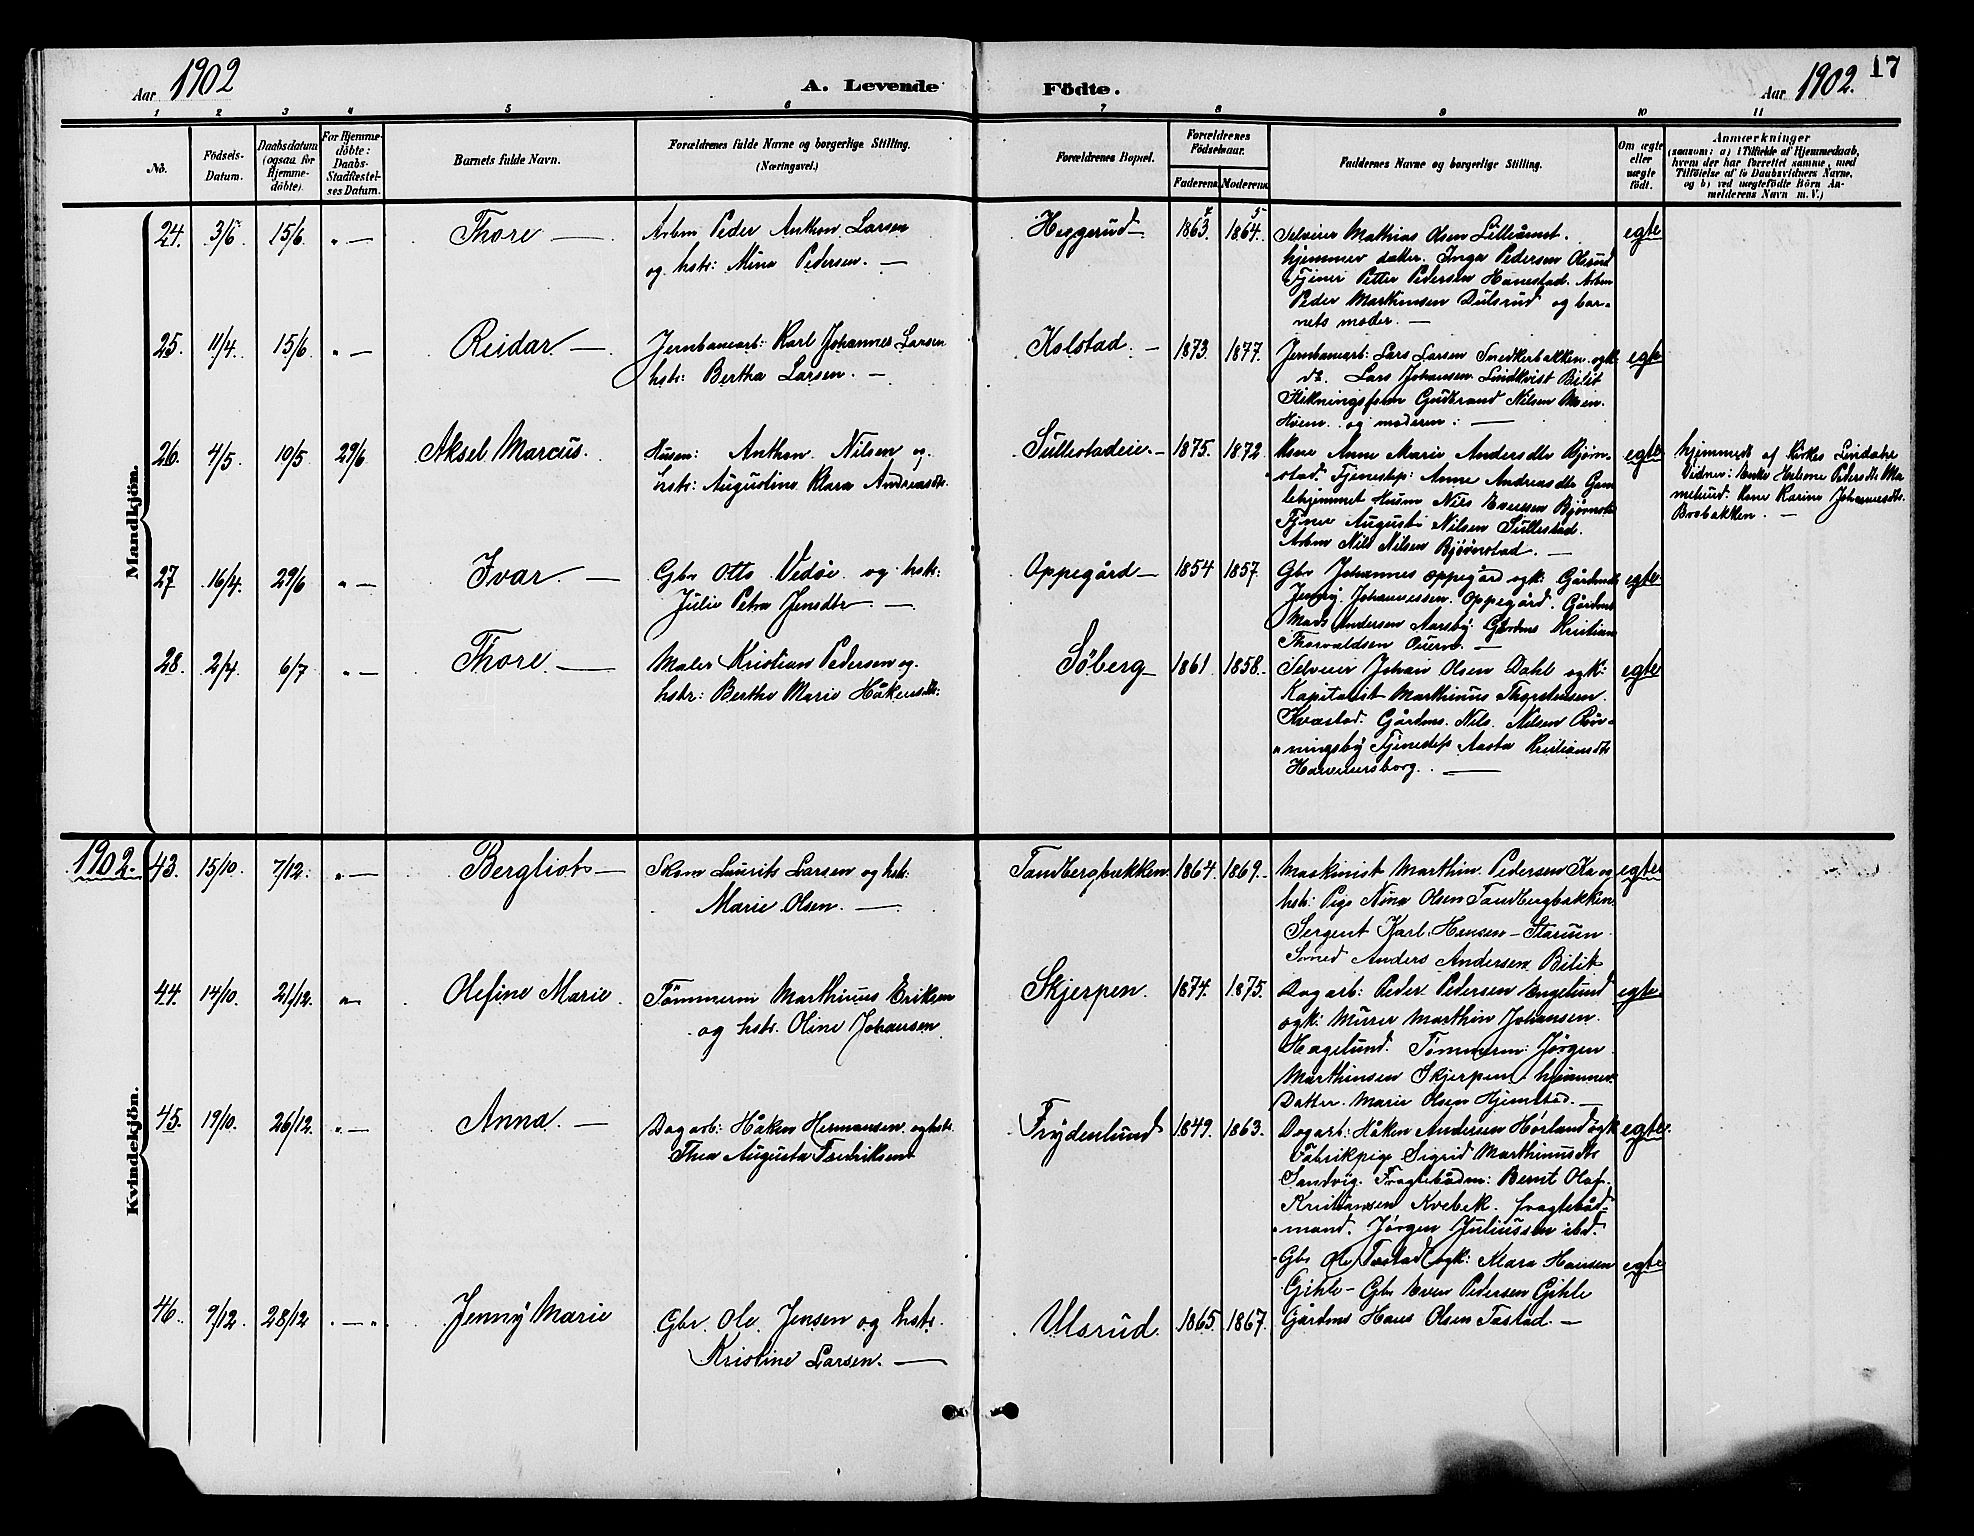 Aar 1902 A. Levende Födte. Aar 1902. 17
1 2 3 4 5 6 7 8 9 10 11
No.
Födsels-
Datum.
Daabsdatum
(ogsaa for
Hjemme-
döbte).
For Hjemme-
döbte:
Daabs-
Stadfæstel-
ses Datum.
Barnets fulde Navn.
Forældrenes fulde Navne og borgerlige Stilling.
(Næringsvei.)
Forældrenes Bopæl.
Forældrenes
Födselsaar.
Faderens. Moderens.
Faddernes Navne og borgerlige Stilling.
Om ægte
eller
uægte
födt.
Anmærkninger
(saasom: a) i Tilfælde af Hjemmedaab,
hvem der har forrettet samme, med
Tilföielse af to Daabsvidners Navne,
og b) ved uægtefödte Börn An-
melderens Navn m. V.)
Mandkjön.
24. 3/5 15/6 " — Thore —
Arbm Peder Anthon Larsen
og hstr: Mina Pedersen. —
Heggerud — 1863. 1864.
Selveier Mathias Olsen Lilleåmot.
hjemmev datter. Inga Pedersen Olsrud
Tjener Petter Pedersen Hanestad. Arbm
Peder Marthinsen Dulsrud og bar-
nets moder. —
egte
25. 11/4. 15/6 " — Reidar —
Jernbanearb: Karl Johannes Larsen
hstr: Bertha Larsen. —
Kolstad. — 1873. 1877.
Jernbanearb: Lars Larsen Snedkerbakken. ogk:
do. Lars Johansen Lindkvist Bilit
Nilsen Moen.
og moderen. —
egte
26. 4/5 10/5 29/6 Aksel Marcus.
Husm: Anthon Nilsen og
hstr: Augustine Klara Andreasdtr.
Sullestadeie — 1875. 1872
Kone Anne Marie Andersdtr Bjørn-
stad. Tjenestep: Anne Andreasdtr Gam-
lehjemmet Husm Nils Evensen Bjørnstad
Tjener August Nilsen Sullestad.
Arbm Nils Nilsen Bjørnstad. —
egte
hjemmedt af Kirkes Lindahl
Vidner: Enke Helene Pedersdtr Ma-
melund. Kone Karine Johannesdtr.
Brobakken. —
27 16/4. 29/6 " — Ivar. —
Gbr Otto Vedøe. og hstr:
Julie Petra Jensdtr. —
Oppegård — 1854 1857.
Gbr Johannes Oppegård ogk: Gårdmd
Jenny. Johannessen. Oppegård. Gårdmd
Mads Andersen Aarsby Gårdms Kristian
Thorvaldsen Ouern. —
egte
28. 2/4 6/7 " — Thore —
Maler Kristian Pedersen og.
hstr: Berthe Marie Håkensdtr:
Söberg — 1861. 1858.
Selveier Johan Olsen Dahl ogk:
Kapitalist Marthinus Thorstensen
Kvastad. Gårdms. Nils. Nilsen Røn-
ningsby Tjenestep Aasta Kristiansdtr
Hammersborg. —
egte
Kvindekjön.
1902. 43. 15/10. 7/12. " — Bergliot —
Skom Laurits Larsen og hstr:
Marie Olsen. —
Tandbergbakken 1864 1869.
Maskinist Marthin Pedersen Ka og
hstr: Pige Nina Olsen Tandbergbakken
Sergent Karl Hansen — Staruen
Smed Anders Andersen Bilit
egte
44. 14/10. 21/12. " Olefine Marie.
Tömmerm Marthinus Eriksen
og hstr. Oline Johansen
Skjerpen. 1874. 1875.
Dagarb: Peder Pedersen Engelund
ogk: Murer Marthin Johansen.
Hagelund. Tömmerm: Jørgen
Marthinsen Skjerpen hjemmev.
Datter. Marie Olsen Hjemstad. —
egte.
45. 19/10. 26/12. " — Anna. —
Dagarb: Håken Hermansen. og hstr.
Thea Augusta Fredriksen
Frydenlund 1849. 1863.
Dagarb: Håken Andersen Hørland ogk
Fabrikpige Sigrid Marthinusdtr
Sandvig. Fragtebådm: Bernt Olaf
Kristiansen Kvebek. fragtebåd-
mand. Jørgen Juliussen ibd.
egte.
46. 9/12. 28/12 " — " Jenny Marie
Gbr. Ole. Jensen og hstr.
Kristine Larsen. —
Ulsrud. 1865. 1867.
Gbr Ole Tostad ogk: Klara Hansen
Gihle — Gbr Even Pedersen Gihle
Gårdms Hans Olsen Tostad. —
egte